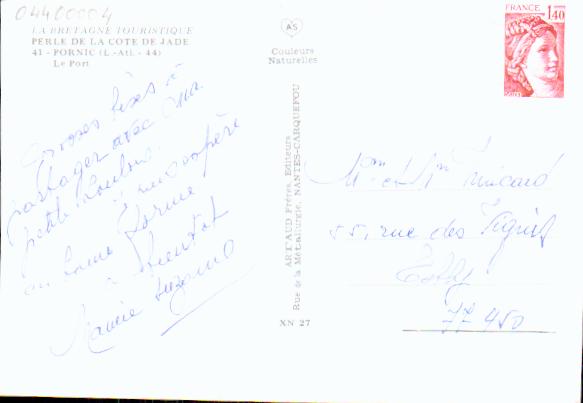 04400004
LA BRETAGNE TOURISTIQUE
PERLE DE LA COTE DE JADE
41 - PORNIC (L.-Atl. - 44)
Le Port
AS
Couleurs
Naturelles
FRANCE
1,40
Grosses bises à
partager avec
petits loulous.
en bonne forme
à bientot
Mamie Suzanne
ARTAUD Frères, Editeurs
Rue de la Métallurgie, NANTES-CARQUEFOU
XN 27
Mme et Mr
55, rue des